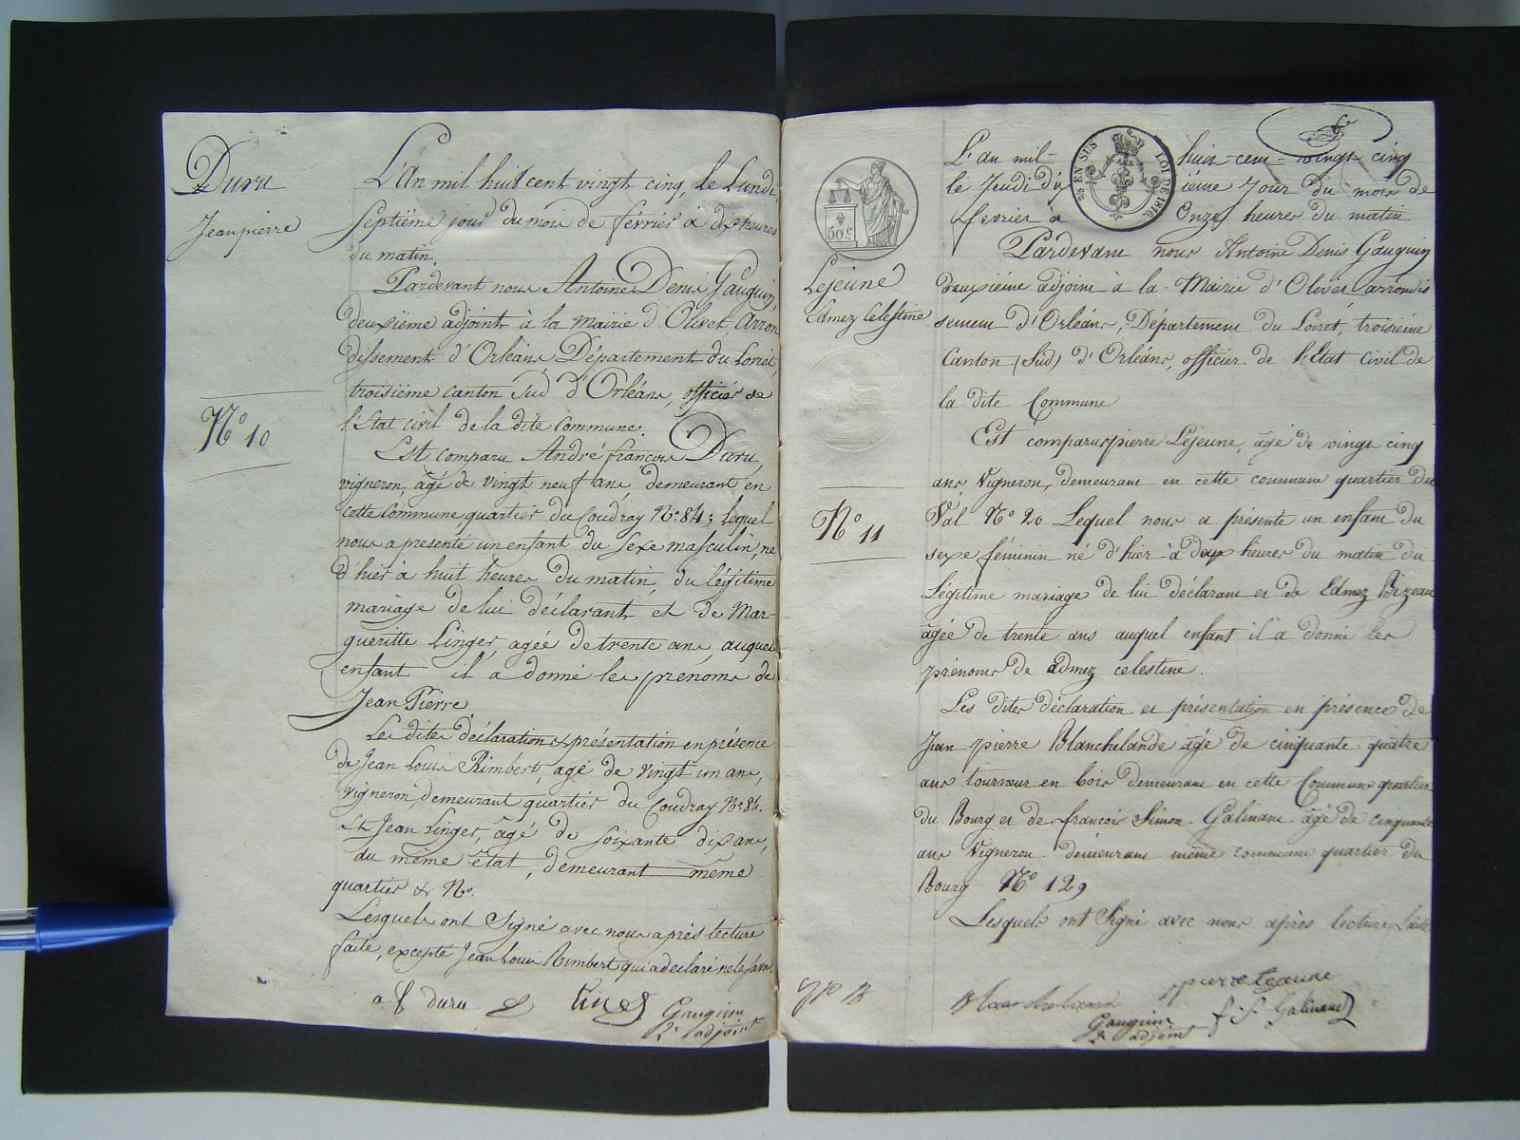 Duru
Jeanpierre
N.o 10
L'An mil huit cent vingt cinq, le Lundi
septiéme jour du mois de février à dix heures
du matin.
Pardevant nous Antoine Denis Gauguin,
deuxiéme adjoint à la Mairie d'Olivet, Arron
dissement d'Orléans Département du Loiret,
troisiéme canton Sud d'Orléans, officier de
l'état civil de la dite Commune.
Est comparu André francois Duru,
vigneron, âgé de vingt neuf ans, demeurant en
cette Commune, quartier du Coudray N.o 84; lequel
nous a présenté un enfant du Sexe masculin, né
d'hier à huit heures du matin, du légitime
mariage de lui déclarant, et de Mar-
gueritte Linger, agée de trente ans, auquel
enfant il a donné les prenoms de
Jean Pierre
Les dites déclaration & présentation en présence
de Jean Louis Rimbert, agé de vingt un ans,
vigneron, demeurant quartier du Coudray N.o 84.
Et Jean Linger, âgé de soixante dix ans,
du même état, demeurant même
quartier & N.o
Lesquels ont Signé avec nous après lecture
faite, excepté Jean Louis Rimbert qui a déclaré ne le savoir.
a f duru
Gauguin
2.e adjoint
60 C
Lejeune
Edmez Celestine
N.o 11
EN SUS LOI DE 1816
L'an mil huit-cent-vingt cinq
le Jeudi dix ième jour du mois de
fevrier à Onze heures du matin
Pardevant nous Antoine Denis Gauguin
deuxiéme adjoint à la Mairie d'Olivet arrondis
sement d'Orléans, Département du Loiret, troisiéme
Canton (Sud) d'Orléans, officier de l'état civil de
la dite Commune
Est comparu pierre Lejeune, âgé de vingt cinq
ans, Vigneron, demeurant en cette commune quartier du
Val N.o 20 Lequel nous a présenté un enfant du
sexe féminin né d'hier à deux heures du matin du
Légitime mariage de lui déclarant et de Edmez Bizeau
âgée de trente ans auquel enfant il a donné les
prénoms de Edmez celestine.
Les dites déclaration et présentation en présence de
Jean pierre Blanchelande âgé de cinquante quatre
ans tourneur en bois demeurant en cette Commune quartier
du Bourg et de francois Simon Galineau âgé de cinquante
ans Vigneron demeurant même commune quartier du
Bourg N.o 129
Lesquels ont Signé avec nous après lecture faite
pierre lejeune
Gauguin
2 adjoint
f. S. Galineau